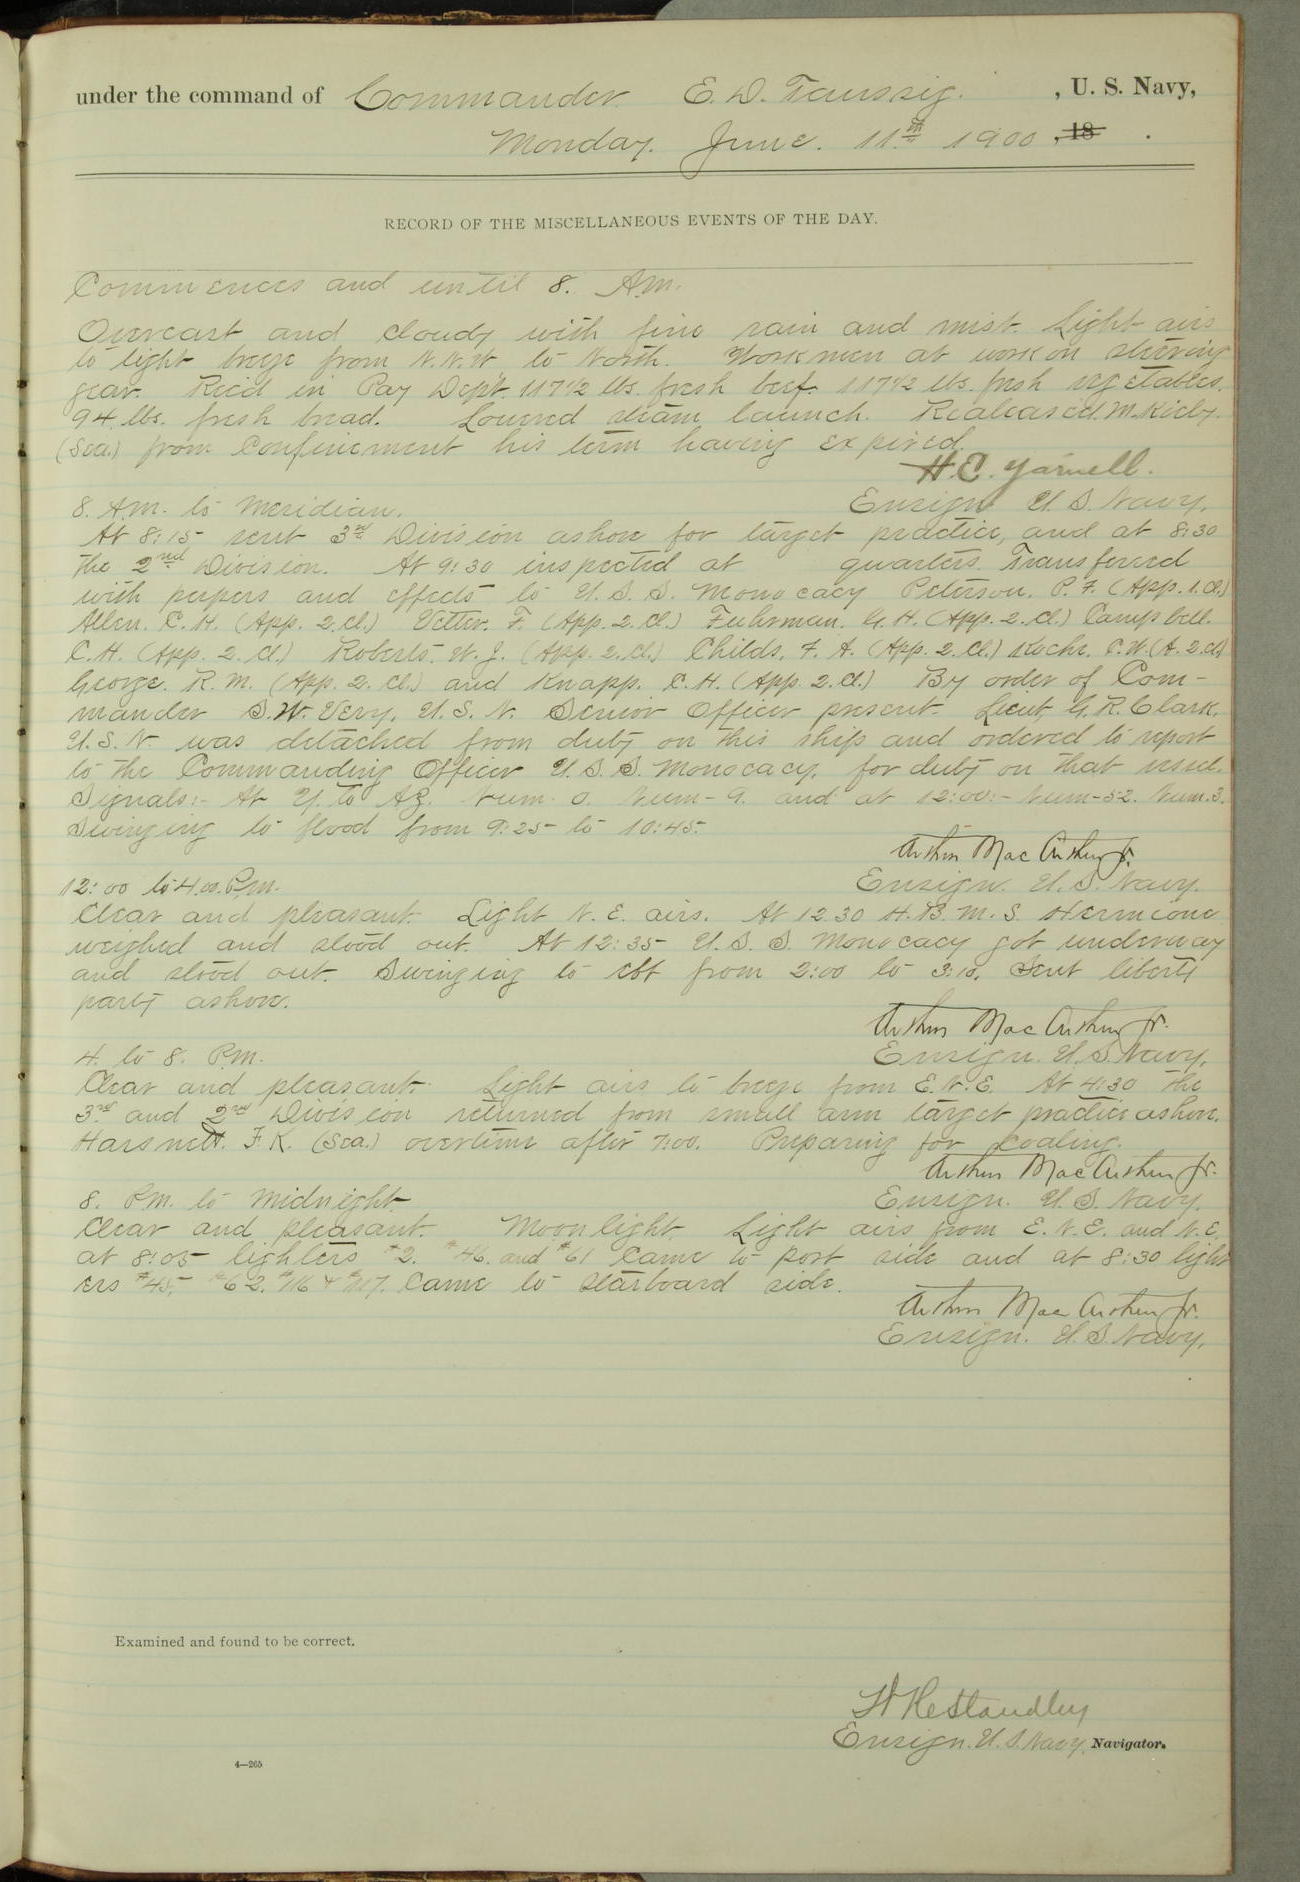 under the command of Commander E. D. Taussig. , U. S. Navy,
Monday. June. 11th 1900 , 18 .
RECORD OF THE MISCELLANEOUS EVENTS OF THE DAY.
Commences and until 8. A.M.
Overcast and cloudy with fine rain and mist. Light airs
to light breeze from N.N.W to North. Workmen at work on steering
gear. Rec'd in Pay Dep't. 117 1/2 lbs. fresh beef. 117 1/2 lbs. fresh vegetables.
94 lbs. fresh bread. Lowered steam launch. Realeased. M. Kirby.
(Sea.) from Confinement his term having expired.
H. E. Yarnell.
8. A.M. to Meridian. Ensign U. S. Navy.
At 8:15 sent 3rd Division ashore for target practice, and at 8:30
the 2nd Division. At 9:30 inspected at quarters. Transferred
with papers and effects to U. S. S. Monocacy Peterson. P. F. (App. 1. Cl.)
Allen. C. H. (App. 2. Cl.) Vetter. F. (App. 2. Cl.) Fuhrman. G. H. (App. 2. Cl.) Campbell.
C. H. (App. 2. Cl.) Roberts. W. J. (App. 2. Cl.) Childs. F. A. (App. 2. Cl.) Kochr. C. W. (A. 2. Cl)
George. R. M. (App. 2. Cl.) and Knapp. C. H. (App. 2. Cl.) By order of Com-
mander S. W. Very. U. S. N. Senior Officer present. Lieut. G. R. Clark.
U. S. N. was detached from duty on this ship and ordered to report
to the Commanding Officer U. S. S. Monocacy. for duty on that vessel.
Signals:- At Y. to AZ. Num. 0. Num-9. and at 12:00:- Num-52. Num. 3.
Swinging to flood from 9:25 to 10:45.
Arthur MacArthur Jr.
12:00 to 4.00. P.M. Ensign. U. S. Navy.
Clear and pleasant. Light N. E. airs. At 12 30 H. B. M. S. Hermione
weighed and stood out. At 12:35 U. S. S. Monocacy got underway
and stood out. Swinging to ebb from 2:00 to 3:10. Sent liberty
party ashore.
Arthur MacArthur Jr.
4. to 8. P.M. Ensign. U. S. Navy.
Clear and pleasant. Light airs to breeze from E. N. E. At 4:30 the
3rd and 2nd Division returned from small arm target practice ashore.
Harsnett. F. K. (Sea.) overtime after 7:00. Preparing for coaling.
Arthur MacArthur Jr.
8. P.M. to Midnight. Ensign. U. S. Navy.
Clear and pleasant. Moonlight. Light airs from E. N. E. and N. E.
at 8:05 lighters #2. #46. and #61 came to port side and at 8:30 light
ers #45. #62. #116 + #117. came to starboard side.
Arthur MacArthur Jr.
Ensign. U. S. Navy.
Examined and found to be correct.
W H Standley
Ensign. U. S. Navy, Navigator.
4—265